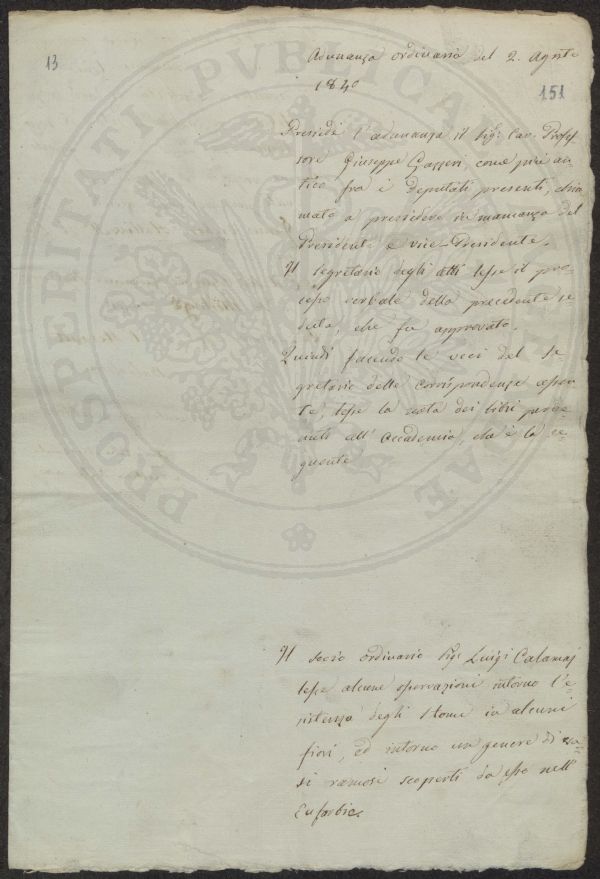 13
Adunanza ordinaria del 2. Agosto
1840
151
Presiedè l'adunanza il Sig: Cav. Profes-
sore Giuseppe Gazzeri, come più an-
tico fra i Deputati presenti, chia-
mato a presiedere in mancanza del
Presidente e vice-Presidente.
Il segretario degli atti lesse il pro-
cesso verbale della precedente se-
duta, che fu approvato.
Quindi facendo le veci del Se-
gretario delle corrispondenze assen-
te, lesse la nota dei libri perve-
nuti all'Accademia, che è la se-
guente
Il socio ordinario Sig: Luigi Calamaj
lesse alcune osservazioni intorno l'e-
sistenza degli stomi in alcuni
fiori, ed intorno un genere di va-
si ramosi scoperti da esso nell'
Euforbie.
PROSPERITATI PVBLICAE